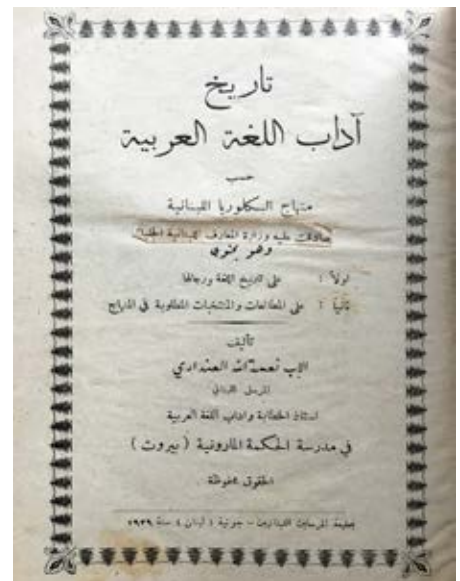 تاريخ
آداب اللغة العربية
حسب
منهاج البكلوريا اللبنانية
صادقت عليه وزارة المعارف اللبنانية الجليلة
وهو يحتوي
اولاً : على تاريخ اللغة ورجالها
ثانياً : على المطالعات والمنتخبات المطلوبة في المنهاج
تأليف
الاب نعمة الله العنداري
المرسل اللبناني
استاذ الخطابة واداب اللغة العربية
في مدرسة الحكمة المارونية ( بيروت )
الحقوق محفوظة
بمطبعة المرسلين اللبنانيين - جونية ( لبنان ) سنة ١٩٣٩